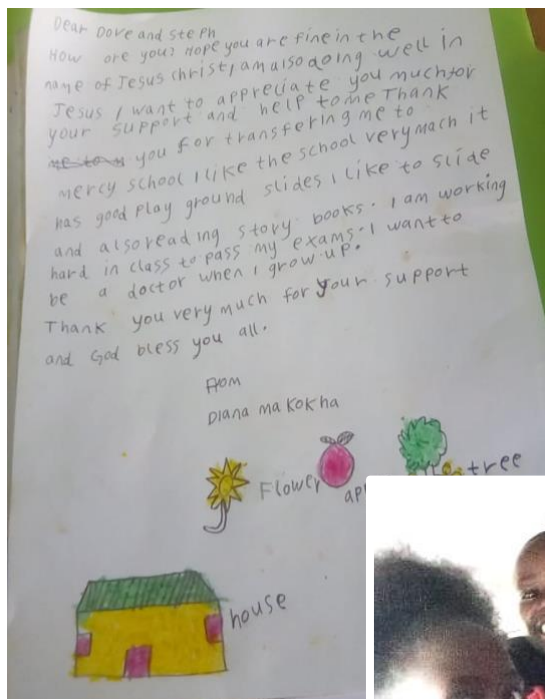 Dear Dove and steph
How are you? Hope you are fine in the
name of Jesus christ, am also doing well in
Jesus I want to appreciate you much for
your support and help to me Thank
you for transfering me to
mercy school I like the school very mach it
has good play ground slides I like to slide
and also reading story books. I am working
hard in class to pass my exams. I want to
be a doctor when I grow up.
Thank you very much for your support
and God bless you all.
From
Diana makokha
Flower
tree
house